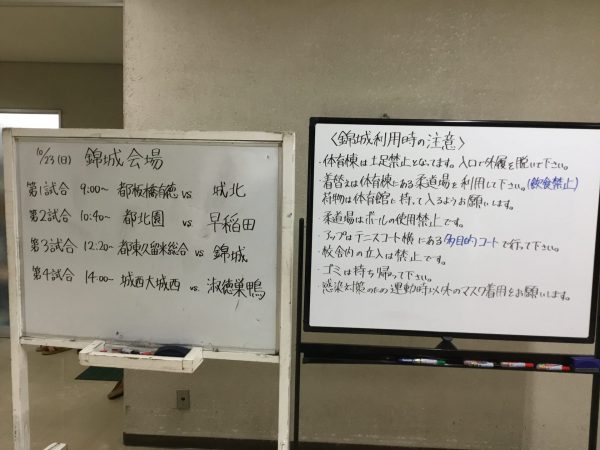 10/23(日) 錦城会場
第1試合 9:00~ 都板橋有徳 vs. 城北
第2試合 10:40~ 都北園 vs. 早稲田
第3試合 12:20~ 都東久留米総合 vs 錦城
第4試合 14:00~ 城西大城西 vs. 淑徳巣鴨
〈錦城利用時の注意〉
・体育棟は土足禁止となってます。入口で外履を脱いで下さい。
・着替えは体育棟にある柔道場を利用して下さい。(飲食禁止)
荷物は体育館に持って入るようお願いします。
・柔道場はボールの使用禁止です。
・アップはテニスコート横にある多目的コートで行って下さい。
・校舎内の立入は禁止です。
・ゴミは持ち帰って下さい。
・感染対策のため運動時以外のマスク着用をお願いします。